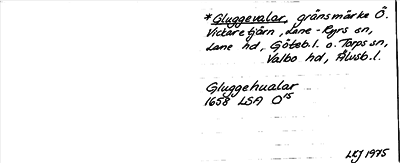 *Gluggevalar, gränsmärke Ö.
Vickare tjärn, Lane-Ryrs sn,
Lane hd, Göteb.l. o. Torps sn,
Valbo hd, Älvsb.l.
Gluggehualar
1658 LSA O15
LKJ 1975